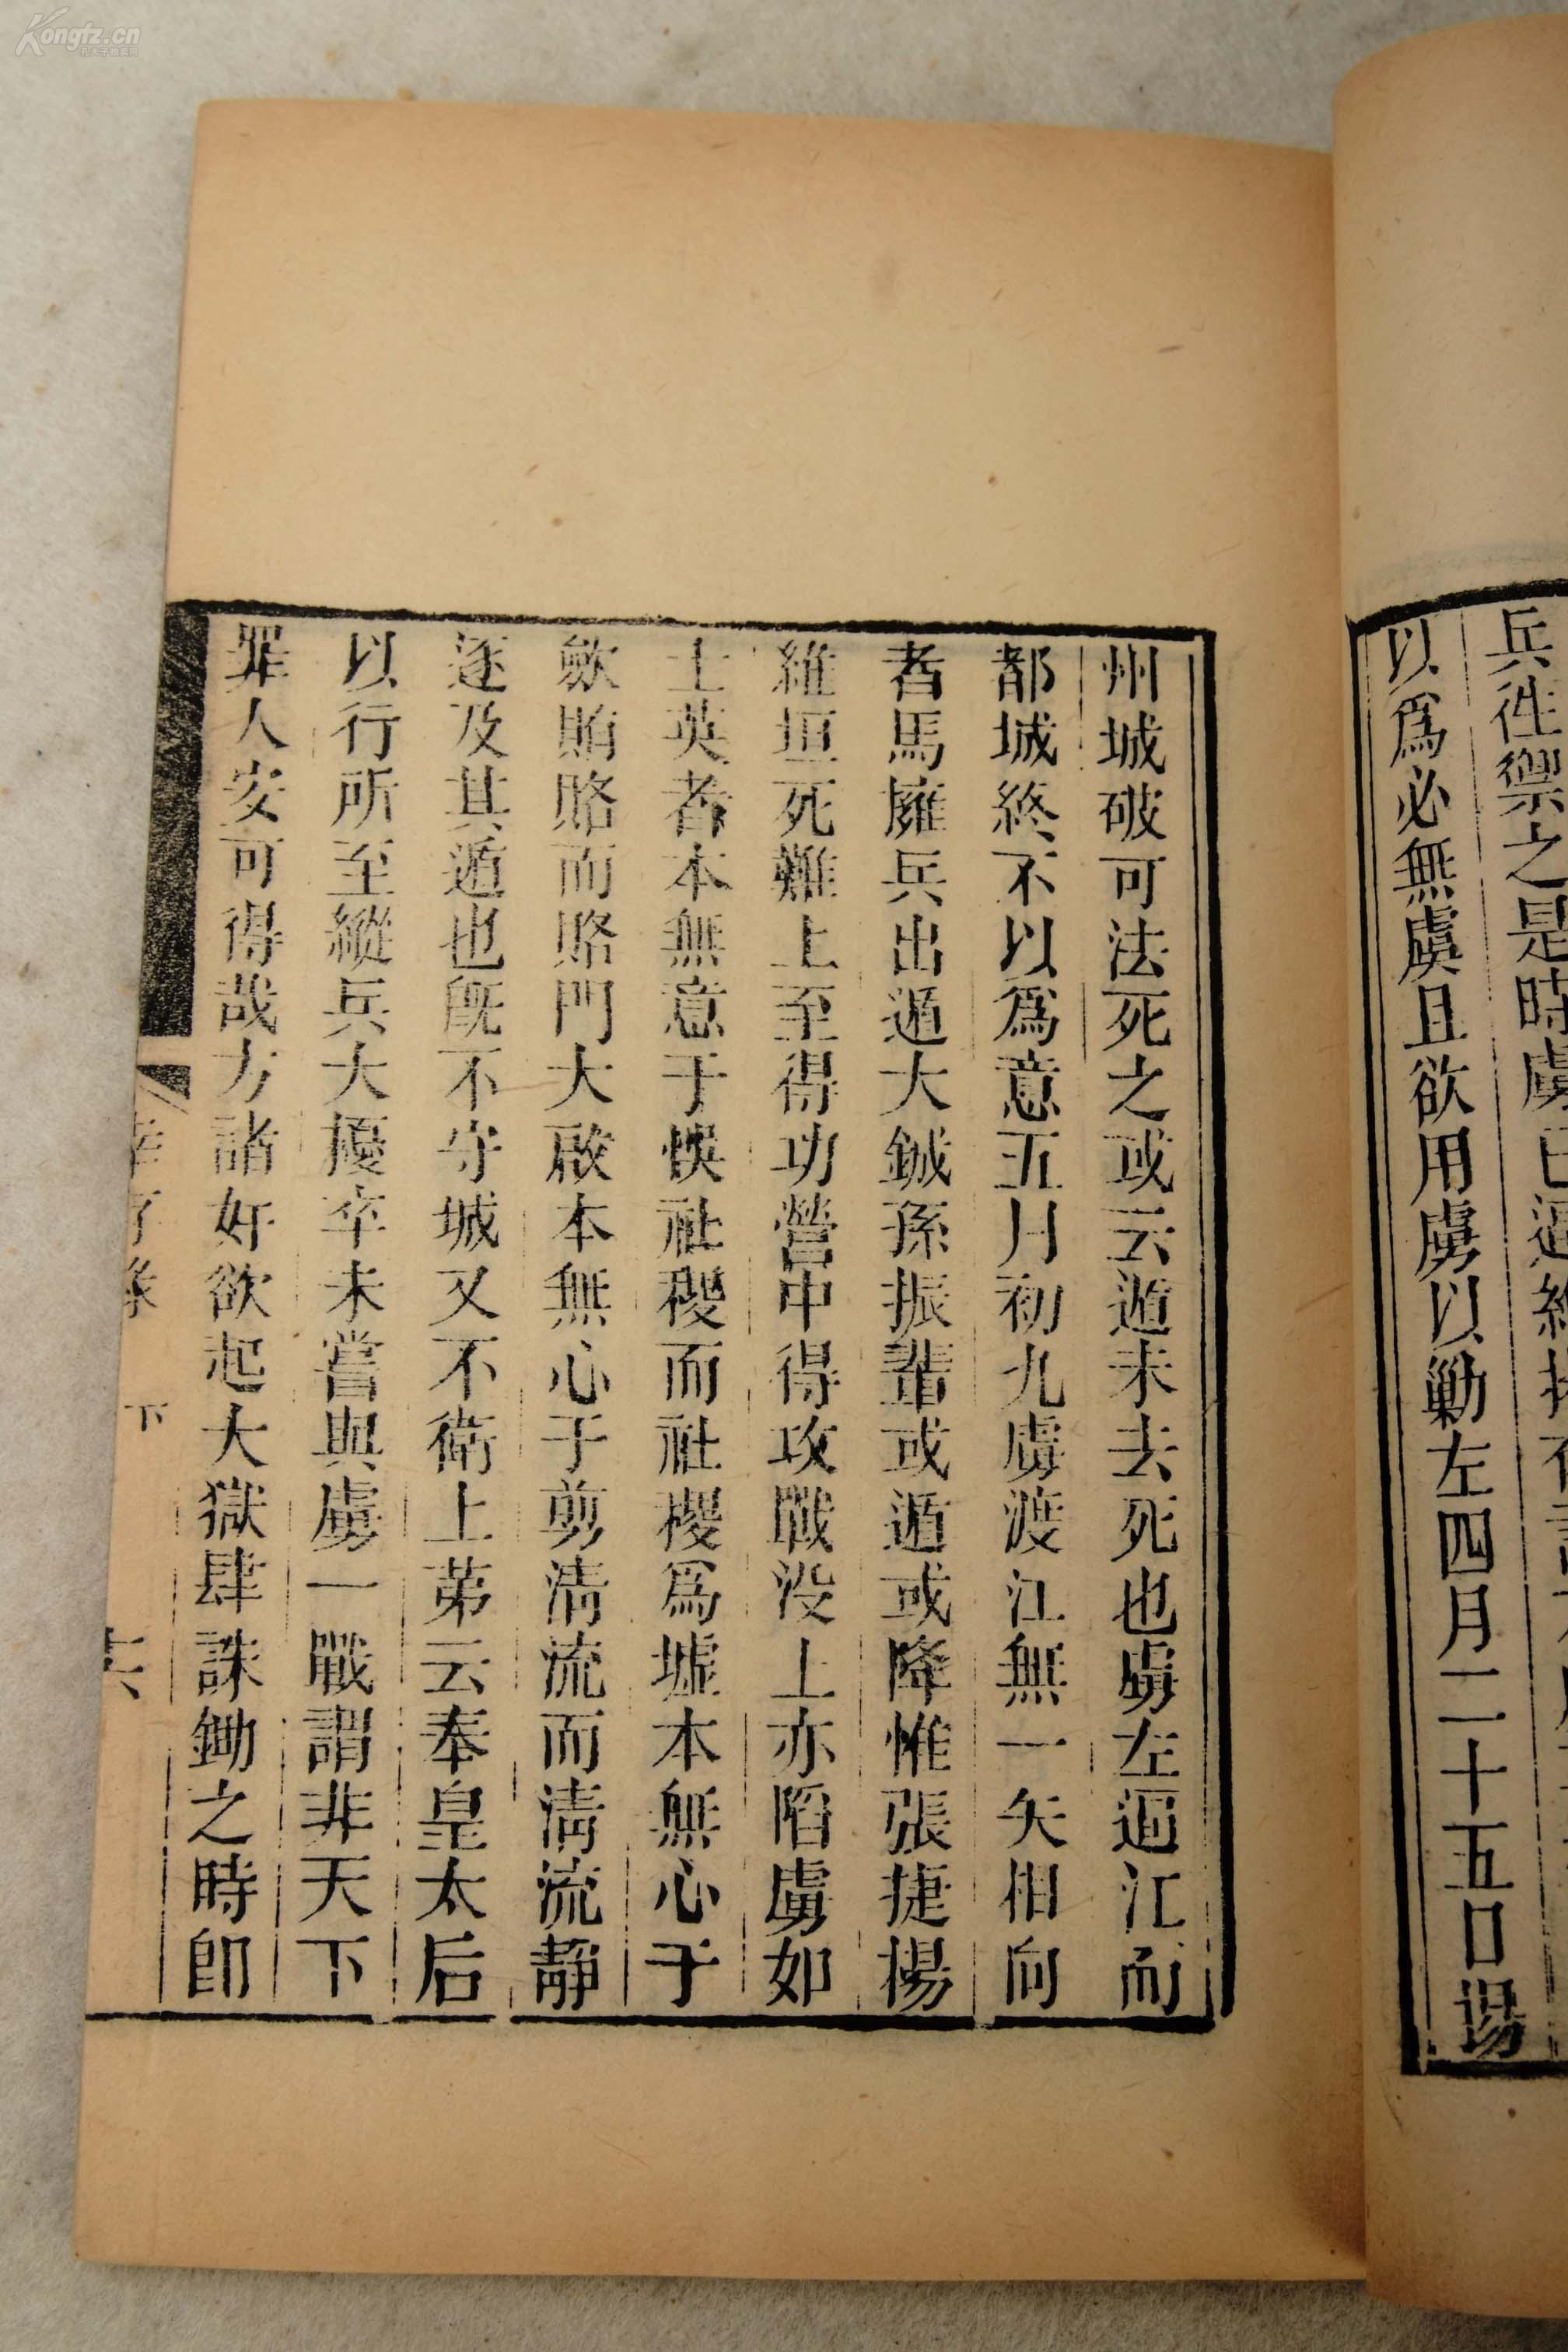 兵徃禦之是時虜已逼
以爲必無虞且欲用虜以勦左四月二十五日揚
州城破可法死之或云遁未去死也虜左逼江而
都城終不以爲意五月初九虜渡江無一矢相向
者馬擁兵出遁大鋮孫振輩或遁或降惟張捷楊
維垣死難上至得功營中得攻戰没上亦陷虜如
士英者本無意于悞社稷而社稷爲墟本無心于
歛賄賂而賂門大啟本無心于剪清流而清流靜
逐及其遁也旣不守城又不衛上第云奉皇太后
以行所至縱兵大擾卒未嘗與虜一戰謂非天下
罪人安可得哉方諸奸欲起大獄肆誅鋤之時卽
幸存錄 下 十六
Kongfz.cn